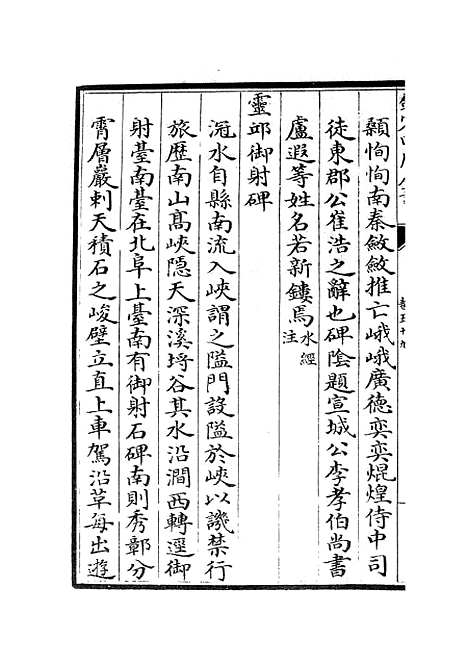 顙恂恂南秦斂斂推亡峨峨廣德奕奕焜煌侍中司
徒東郡公崔浩之辭也碑隂題宣城公李孝伯尚書
盧遐等姓名若新鏤焉水經注
靈邱御射碑
滱水自縣南流入峽謂之隘門設隘於峽以譏禁行
旅歷南山髙峽隠天深溪埒谷其水沿澗西轉逕御
射臺南臺在北阜上臺南有御射石碑南則秀鄣分
霄層巖刺天積石之峻壁立直上車駕沿草每出遊